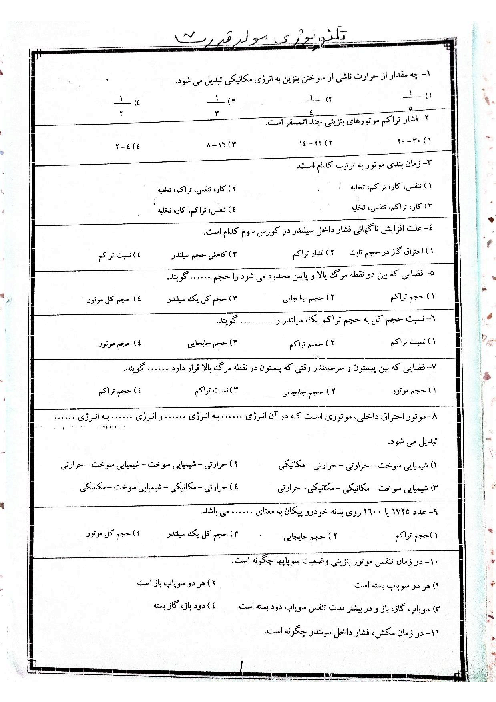 تکنولوژی مولد قدرت
۱- چه مقدار از حرارت ناشی از سوختن بنزین به انرژی مکانیکی تبدیل می شود.
۱) ۱/۵ ۲) ۱/۴ ۳) ۱/۳ ۴) ۱/۲
۲- فشار تراکم موتورهای بنزینی چند اتمسفر است.
۱) ۳۰-۲۰ ۲) ۲۲-۱۴ ۳) ۱۶-۸ ۴) ۴-۲
۳- زمان بندی موتور به ترتیب کدام است.
۱) تنفس، کار، تراکم، تخلیه ۲) کار، تنفس، تراکم، تخلیه
۳) کار، تراکم، تنفس، تخلیه ۴) تنفس، تراکم، کار، تخلیه
۴- علت افزایش ناگهانی فشار داخل سیلندر در کورس سوم کدام است.
۱) احتراق گاز در حجم ثابت ۲) فشار تراکم ۳) کاهش حجم سیلندر ۴) نسبت تراکم
۵- فضایی که بین دو نقطه مرگ بالا و پایین محدود می شود را حجم ...... گویند.
۱) حجم تراکم ۲) حجم جابجایی ۳) حجم کل یک سیلندر ۴) حجم کل موتور
۶- نسبت حجم کل به حجم تراکم یک سیلندر را ........ گویند.
۱) نسبت تراکم ۲) حجم تراکم ۳) حجم جابجایی ۴) حجم موتور
۷- فضایی که بین پیستون و سرسیلندر وقتی که پیستون در نقطه مرگ بالا قرار دارد ...... گویند.
۱) حجم موتور ۲) حجم جابجایی ۳) نسبت تراکم ۴) حجم تراکم
۸- موتور احتراق داخلی، موتوری است که در آن انرژی ...... به انرژی ...... و انرژی ...... به انرژی ......
تبدیل می شود.
۱) شیمیایی سوخت - حرارتی - حرارتی - مکانیکی ۲) حرارتی - شیمیایی سوخت - شیمیایی سوخت - حرارتی
۳) شیمیایی سوخت - مکانیکی - مکانیکی - حرارتی ۴) حرارتی - مکانیکی - شیمیایی سوخت - مکانیکی
۹- عدد ۱۷۲۵ یا ۱۶۰۰ روی بدنه خودرو پیکان به معنای ...... می باشد.
۱) حجم تراکم ۲) حجم جابجایی ۳) حجم کل یک سیلندر ۴) حجم کل موتور
۱۰- در زمان تنفس موتور بنزینی وضعیت سوپاپها چگونه است.
۱) هر دو سوپاپ بسته است ۲) هر دو سوپاپ باز است
۳) سوپاپ گاز، باز و در بیشتر مدت تنفس سوپاپ دود بسته است ۴) دود باز، گاز بسته
۱۱- در زمان مکش، فشار داخل سیلندر چگونه است.
۱